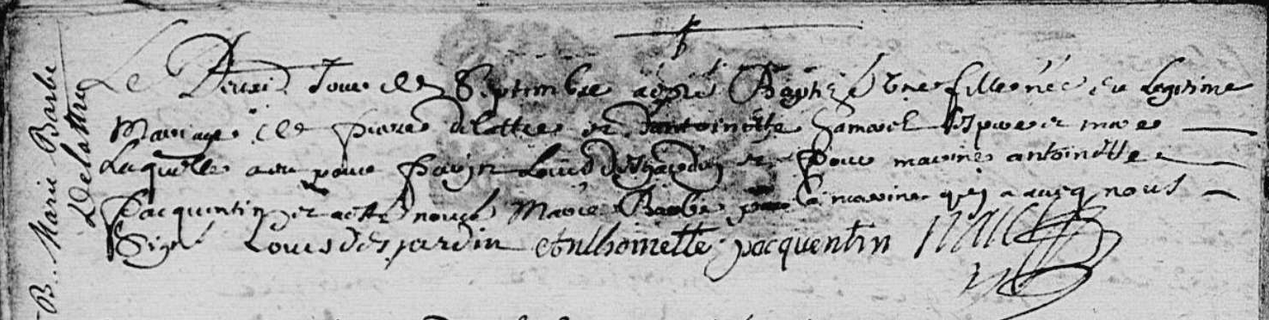 B. Marie Barbe
Delattre
Le Jour de Septembre a esté Baptizé Une fille née en Legitime
Mariage de Pierre delattre et d'antoinette ses pere et mere
Laquelle a eu pour parin Louis desjardin et pour marine antoinette
Pacquentin et a esté nommé Marie Barbe la marine qui a avecq nous
Signé Louis desjardin Anthoinette pacquentin